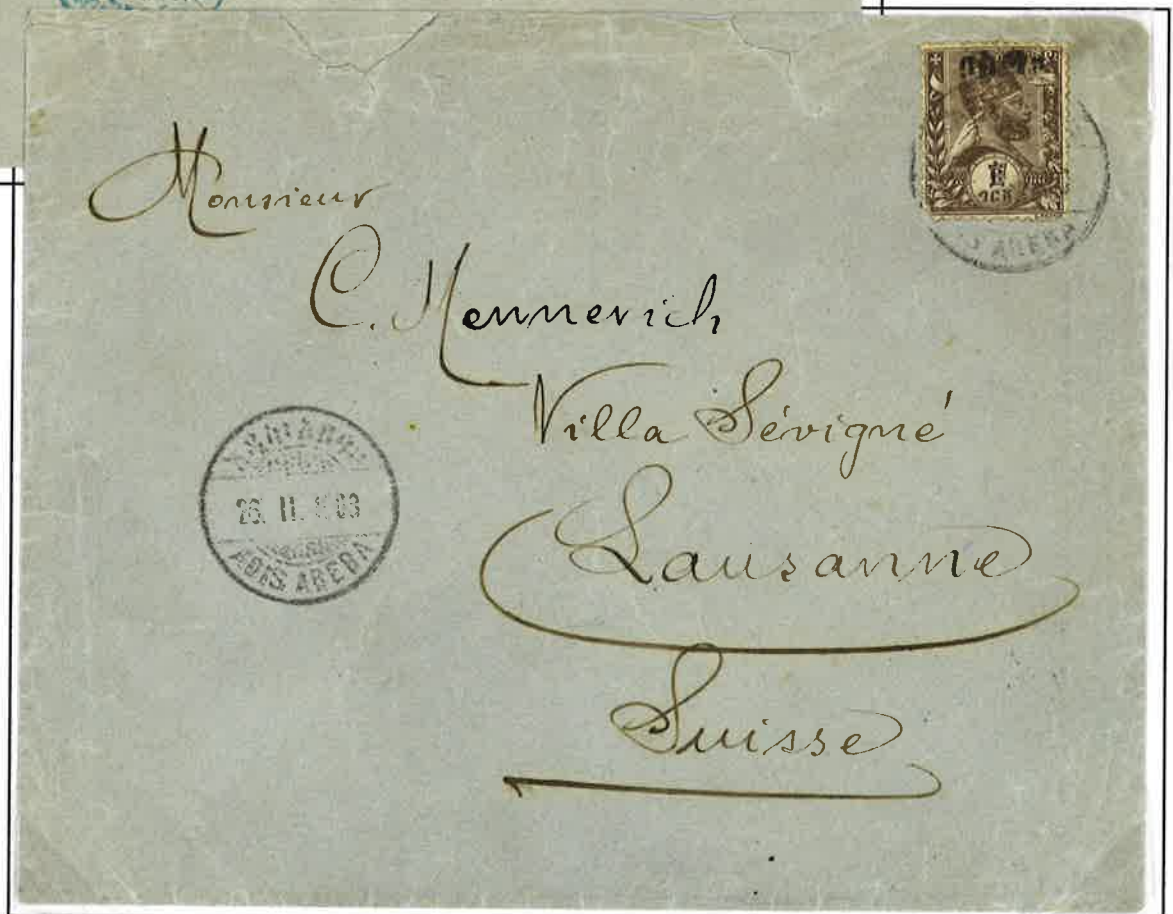 Monsieur
C. Mennevich
Villa Sévigné
Lausanne
Suisse
26. II.
ADIS ABEBA